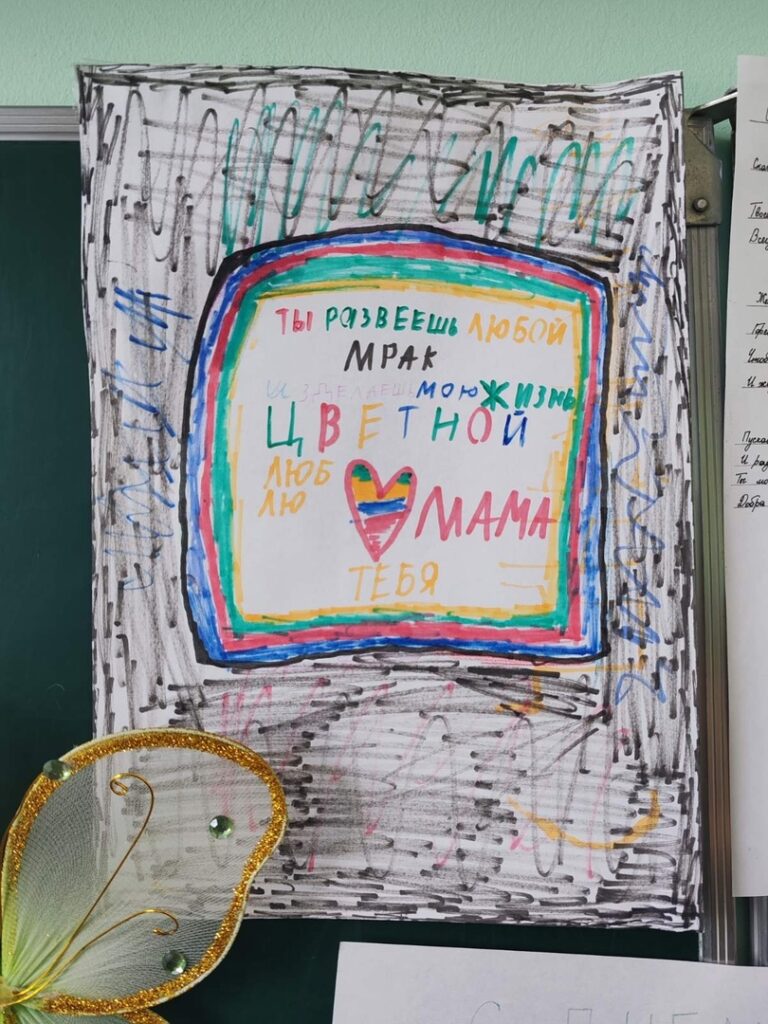 ТЫ РАЗВЕЕШЬ ЛЮБОЙ
МРАК
И ЗДЕЛАЕШЬ МОЮ ЖИЗНЬ
ЦВЕТНОЙ
ЛЮБ
ЛЮ
МАМА
ТЕБЯ
Ты мо
Добра